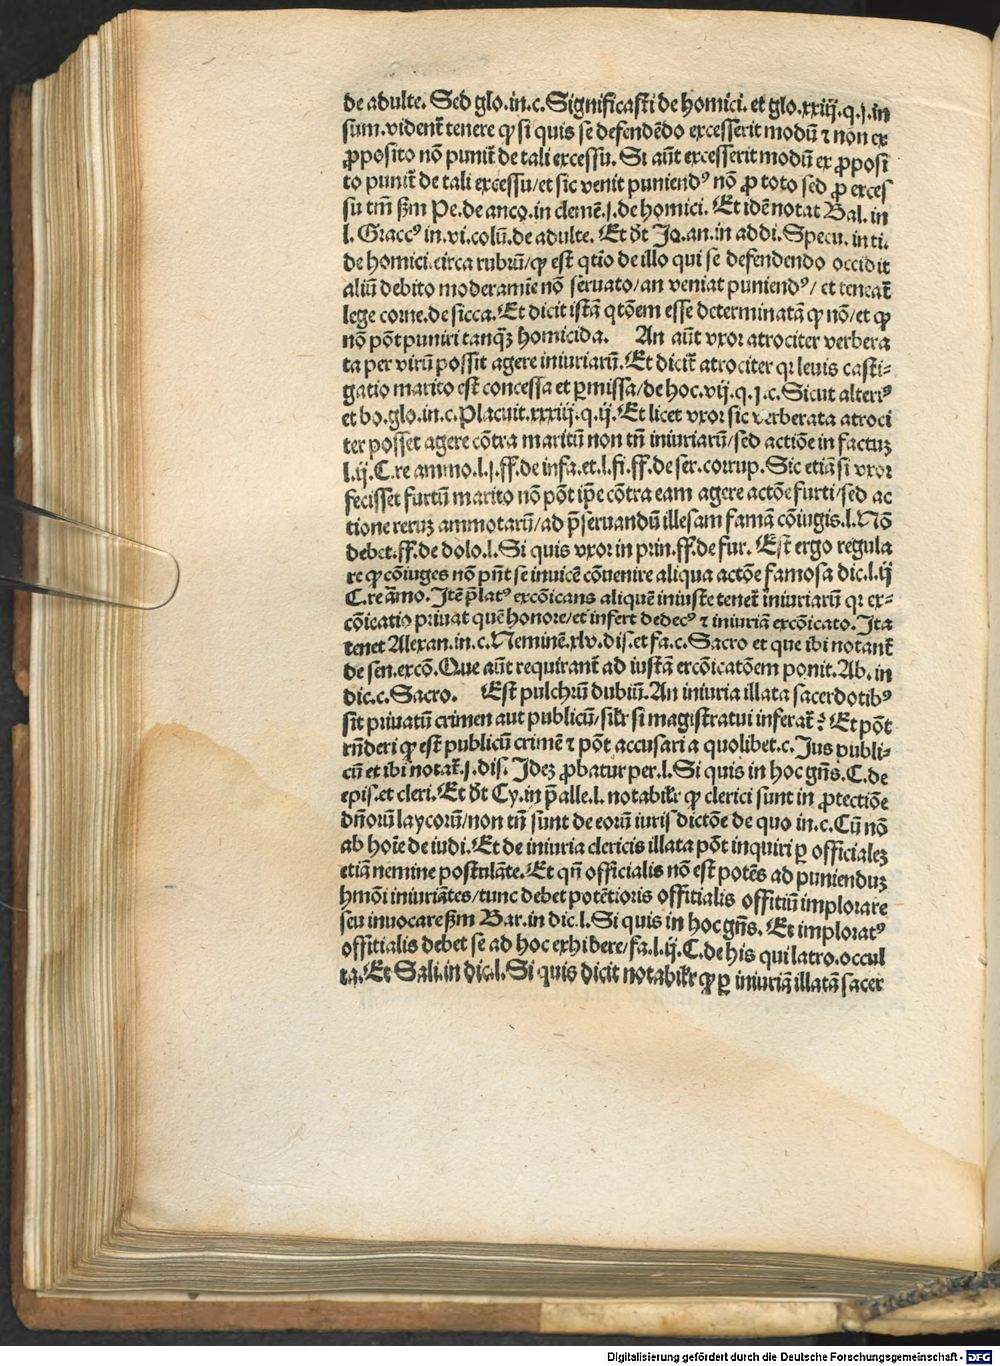 de adulte. Sed glo.in.c. Significasti de homici. et glo.xxiij.q.j.in
sum.vident̄ tenere qꝫ si quis se defendēdo excesserit modū ⁊ non ex
ꝓposito nō punit̄ de tali excessu. Si aūt excesserit modū ex ꝓposi
to punit̄ de tali excessu/et sic venit puniendꝰ nō ꝓ toto sed ꝓ exces
su tm̄ ẜm Pe.de anco.in clemē.j.de homici. Et idē notat Bal. in
l. Graccꝰ in.vi.colū.de adulte. Et dt̄ Jo.an.in addi. Specu. in ti.
de homici.circa rubrū/qꝫ est q̄tio de illo qui se defendendo occidit
aliū debito moderamīe nō seruato/an veniat puniendꝰ/ et teneat̄
lege corne.de sicca. Et dicit istā q̄tōem esse determinatā qꝫ nō/et qꝫ
nō pōt puniri tanq̄ꝫ homicida. An aūt vxor atrociter verbera
ta per virū possit agere iniuriarū. Et dicit̄ atrociter qꝛ leuis casti⸗
gatio marito est concessa et ꝑmissa/de hoc.vij.q.j.c. Sicut alteriꝰ
et bo.glo.in.c. Placuit.xxxiij.q.ij. Et licet vxor sic verberata atroci
ter posset agere cōtra maritū non tn̄ iniuriarū/sed actiōe in factuꝫ
l.ij. C.re ammo.l.j.ff.de infa.et.l.fi.ff.de ser.corrup. Sic etiā si vxor
fecisset furtū marito nō pōt ip̄e cōtra eam agere actōe furti/sed ac
tione reruꝫ ammotarū/ad p̄seruandū illesam famā cōiugis.l. Nō
debet.ff.de dolo.l. Si quis vxor in prin.ff.de fur. Est ergo regula
re qꝫ cōiuges nō pn̄t se inuicē cōuenire aliqua actōe famosa dic.l.ij
C.re āmo. Jtē p̄latꝰ excōicans aliquē iniuste tenet̄ iniuriarū qꝛ ex⸗
cōicatio priuat quē honore/et infert dedecꝰ ⁊ iniuriā excōicato. Jta
tenet Alexan.in.c. Neminē.xlv.dis.et fa.c. Sacro et que ibi notant̄
de sen.excō. Que aūt requirant̄ ad iustā excōicatōem ponit. Ab. in
dic.c. Sacro. Est pulchrū dubiū. An iniuria illata sacerdotibꝰ
sit priuatū crimen aut publicū/sil̄r si magistratui inferat̄? Et pōt
rn̄deri qꝫ est publicū crimē ⁊ pōt accusari a quolibet.c. Jus publi⸗
cū et ibi notat̄.j.dis. Jdeꝫ ꝓbatur per.l. Si quis in hoc gn̄s. C.de
epis.et cleri. Et dt̄ Cy.in p̄alle.l. notabil̄r qꝫ clerici sunt in ꝓtectiōe
dn̄orū laycorū/non tn̄ sunt de eorū iurisdictōe de quo in.c. Cū nō
ab hoīe de iudi. Et de iniuria clericis illata pōt inquiri ꝑ officialeꝫ
etiā nemine postulāte. Et qn̄ officialis nō est potēs ad puniendūꝫ
hmōi iniuriātes/tunc debet potētioris offitialis offitiū implorare
seu inuocare ẜm Bar.in dic.l. Si quis in hoc gn̄s. Et imploratꝰ
offitialis debet se ad hoc exhibere/fa.l.ij. C.de his qui latro.occul
ta. Et Sali.in dic.l. Si quis dicit notabil̄r qꝫ ꝑ iniuriā illatā sacer
Digitalisierung gefördert durch die Deutsche Forschungsgemeinschaft - DFG